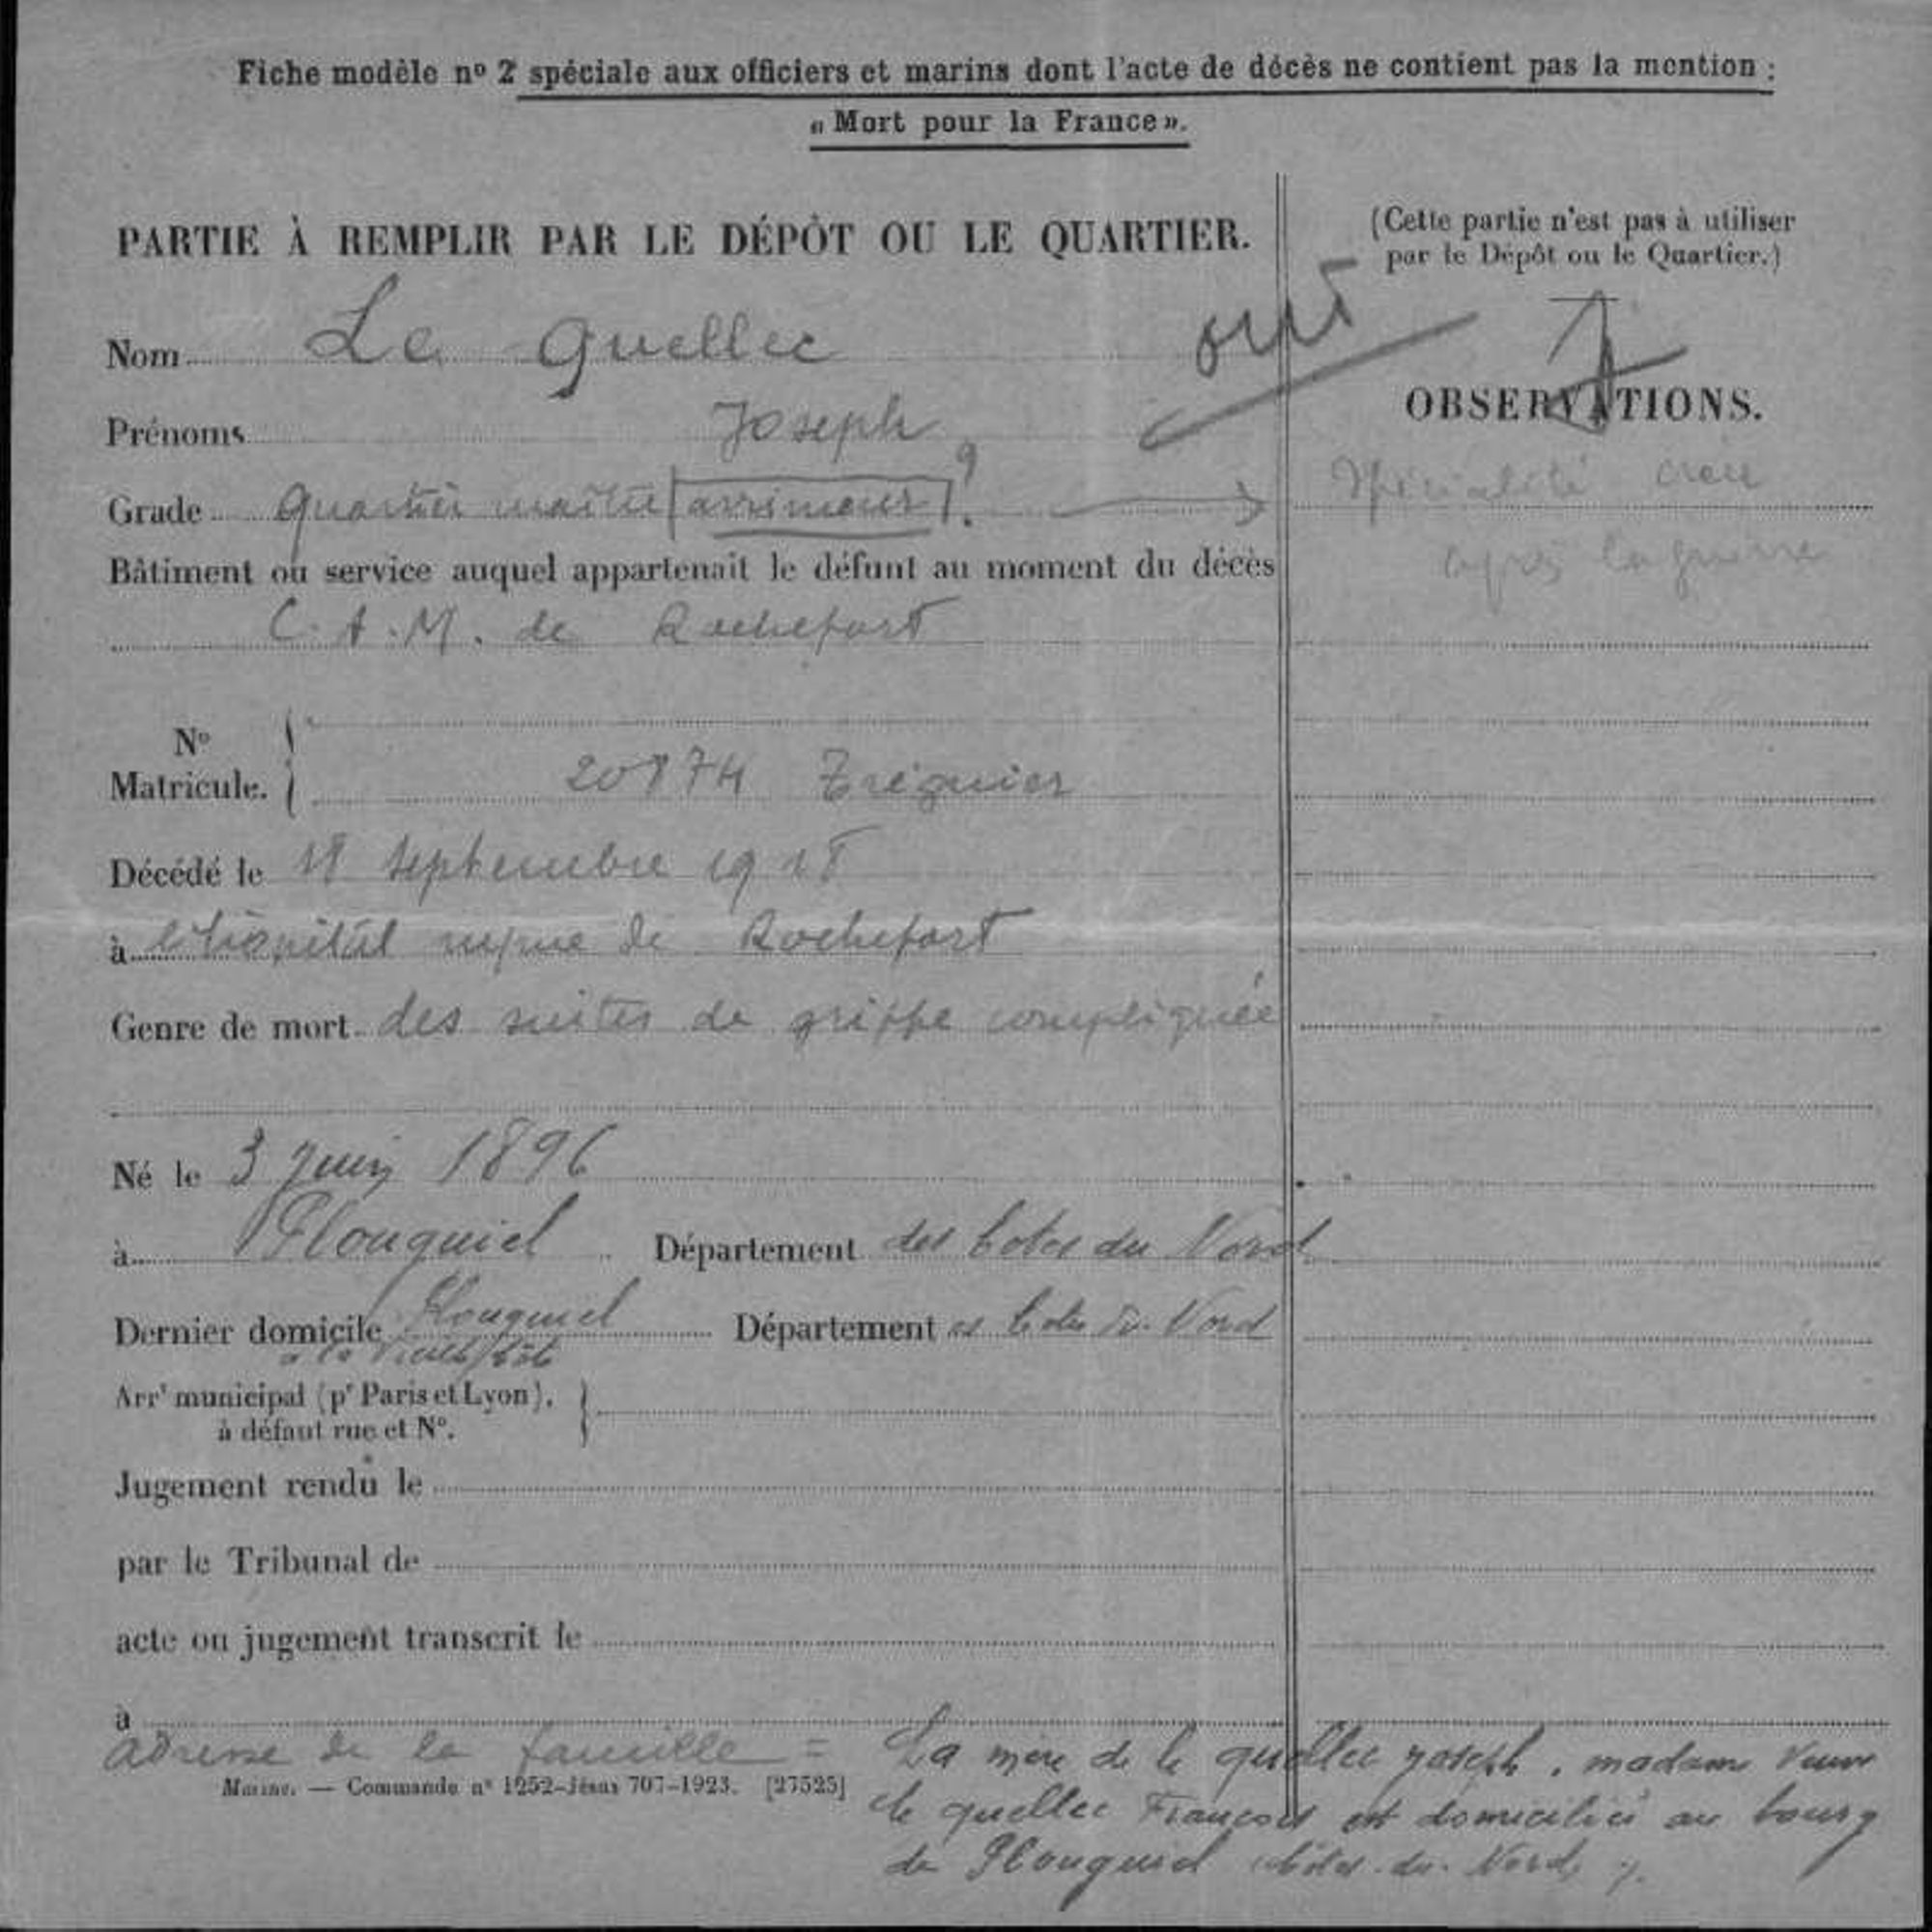 Fiche modèle nº 2 spéciale aux officiers et marins dont l'acte de décès ne contient pas la mention :
« Mort pour la France ».
PARTIE À REMPLIR PAR LE DÉPÔT OU LE QUARTIER.
(Cette partie n'est pas à utiliser
par le Dépôt ou le Quartier.)
Nom Le Quellec
oui
OBSERVATIONS.
Prénoms Joseph
Grade Quartier maître arrimeur ?
Spécialité créée
après la guerre
Bâtiment ou service auquel appartenait le défunt au moment du décès
C. A. M. de Rochefort
Nº
Matricule. 20874 Tréguier
Décédé le 18 Septembre 1918
à l'hôpital de Rochefort
Genre de mort des suites de grippe compliquée
Né le 3 Juin 1896
à Plouguiel Département des Cotes du Nord
Dernier domicile Plouguiel Département Cotes du Nord
à la
Arrt municipal (pr Paris et Lyon),
à défaut rue et Nº.
Jugement rendu le
par le Tribunal de
acte ou jugement transcrit le
à
adresse de la famille = La mère de le quellec Joseph, madame Veuve
le quellec François est domiciliée au bourg
de Plouguiel Côtes-du-Nord
Marine. — Commande nº 1252-Jésus 707-1923. [27525]